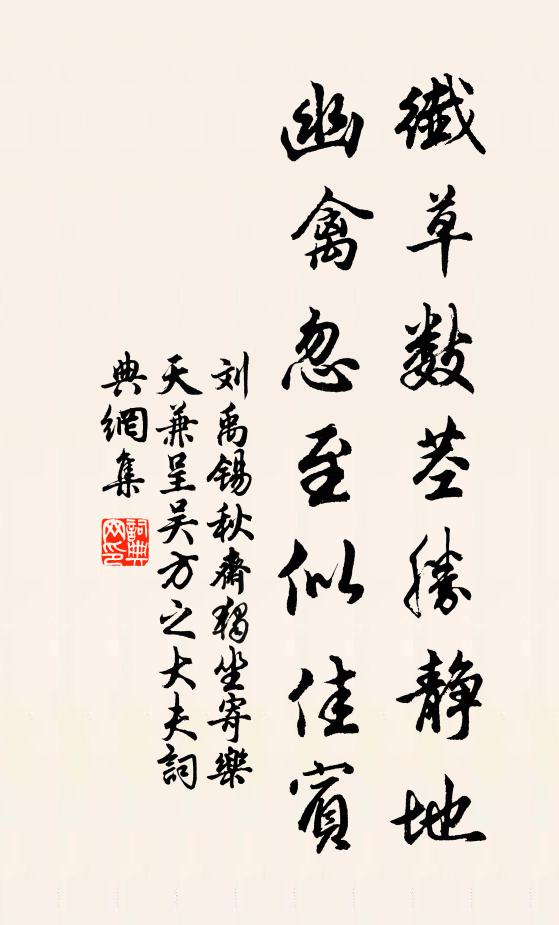 纖草數莖勝静地
幽禽忽至似佳賓
刘禹锡秋齋獨坐寄樂
天兼呈吴方之大夫詞
典網集
詞典
网印